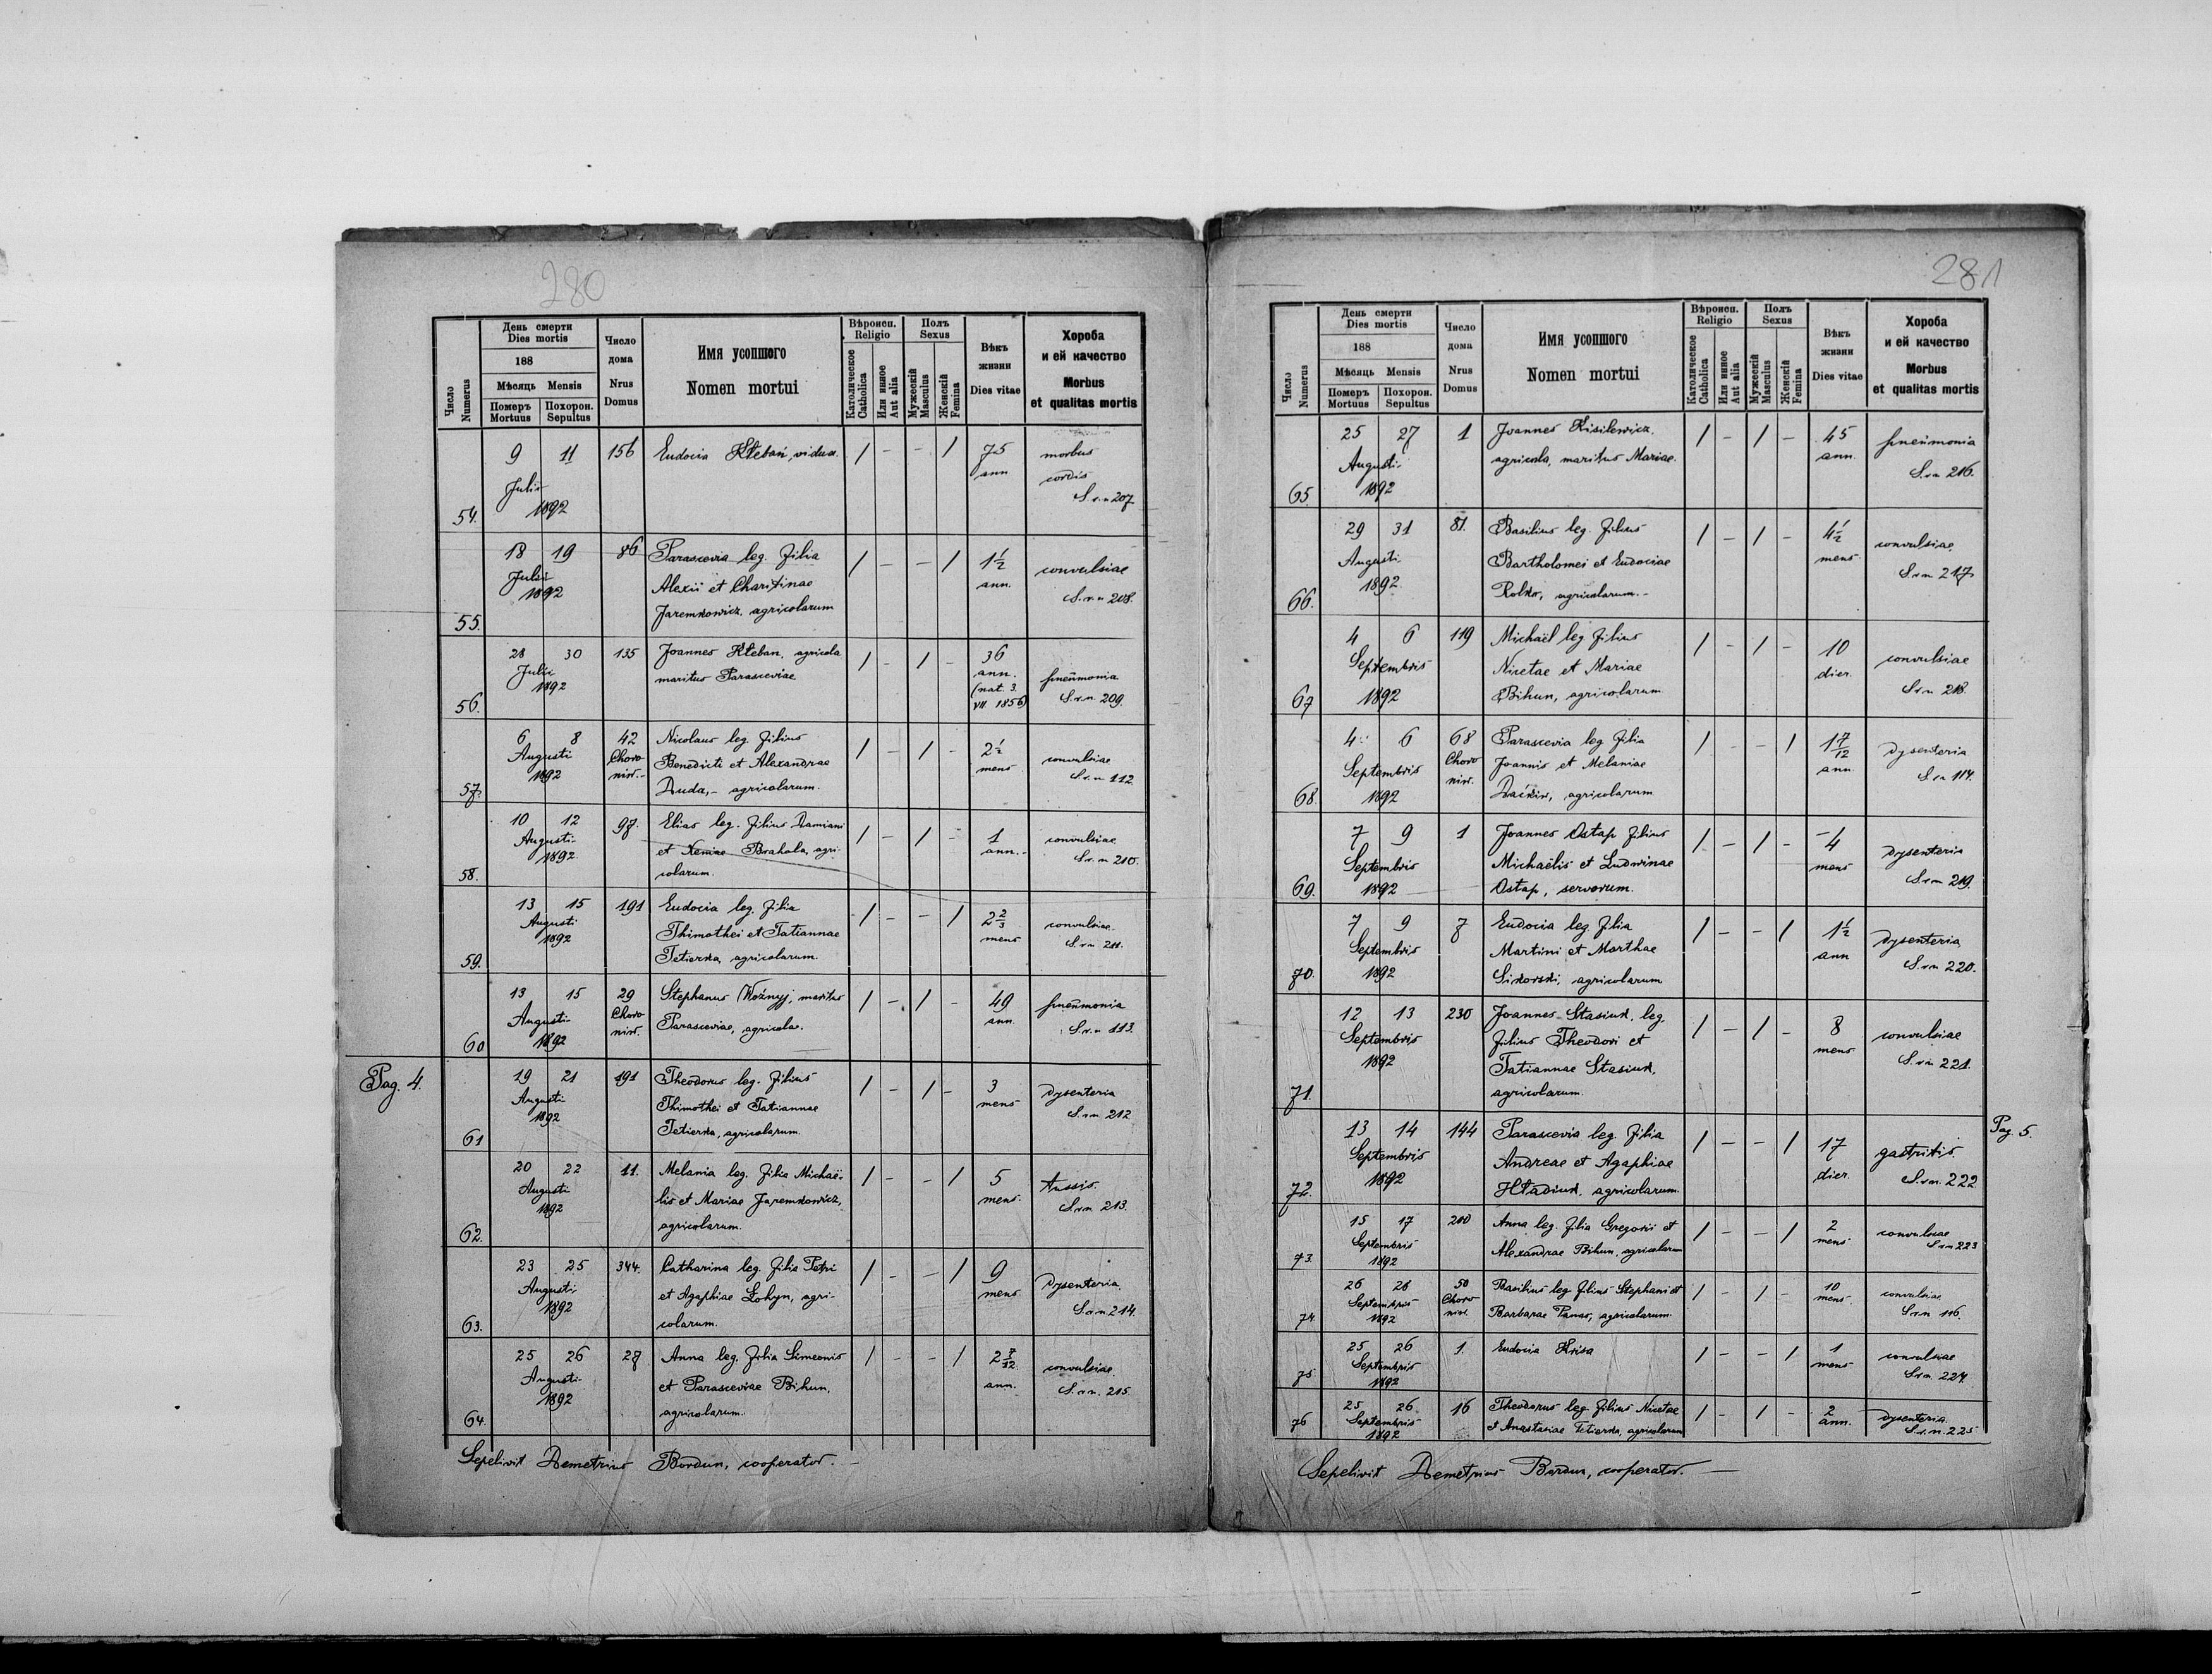 280
Число Numerus
День смерти Dies mortis
188
Мѣсяць Mensis
Померъ Mortuus
Похорон. Sepultus
Число дома Nrus Domus
Имя усопшого
Nomen mortui
Вѣроисп. Religio
Католическое Catholica
Или инное Aut alia
Полъ Sexus
Мужескій Masculus
Женскій Femina
Вѣкъ жизни
Dies vitae
Хороба и ей качество
Morbus et qualitas mortis
54. 9 11 Julii 1892 156 Eudocia Hłeban, vidua. / - - / 75 ann morbus cordis S.v.n 207
55. 18 19 Julii 1892 86 Parascevia leg. filia
Alexii et Charitinae
Jaremkowicz, agricolarum / - - / 1½ ann. convulsiae S.v.n 208.
56. 28 30 Julii 1892 135 Joannes Hłeban, agricola
maritus Parasceviae / - / - 36 ann. (nat. 3. VII 1856) pneumonia S.v.n. 209.
57. 6 8 Augusti 1892 42 Choroniw. Nicolaus leg. filius
Benedicti et Alexandrae
Duda, - agricolarum. / - / - 2½ mens convulsiae S.v.n 112
58. 10 12 Augusti 1892 97. Elias leg. filius Damiani
et Xeniae Brahala, agri-
colarum. / - / - 1 ann. convulsiae S.v.n 210.
59. 13 15 Augusti 1892 191 Eudocia leg. filia
Thimothei et Tatiannae
Tetierka, agricolarum. / - - / 2⅔ mens convulsiae. S.v.n 211.
60 13 15 Augusti 1892 29 Choroniw. Stephanus Woźnyj, maritus
Parasceviae, agricola. / - / - 49 ann. pneumonia S.v.n 113.
Pag. 4.
61 19 21 Augusti 1892 191 Theodorus leg. filius
Thimothei et Tatiannae
Tetierka, agricolarum. / - / - 3 mens dysenteria S.v.n. 212
62. 20 22 Augusti 1892 11. Melania leg. filia Michaë-
lis et Mariae Jaremkowicz,
agricolarum. / - - / 5 mens. tussis. S.v.n 213.
63. 23 25 Augusti 1892 344. Catharina leg. filia Petri
et Agaphiae Łohyn, agri-
colarum. / - - / 9 mens dysenteria S.v.n. 214.
64. 25 26 Augusti 1892 27 Anna leg. filia Simeonis
et Parasceviae Bihun,
agricolarum. / - - / 2 7/12 ann. convulsiae. S.v.n. 215.
Sepelivit Demetrius Bordun, cooperator. -
281
Число Numerus
День смерти Dies mortis
188
Мѣсяць Mensis
Померъ Mortuus
Похорон. Sepultus
Число дома Nrus Domus
Имя усопшого
Nomen mortui
Вѣроисп. Religio
Католическое Catholica
Или инное Aut alia
Полъ Sexus
Мужескій Masculus
Женскій Femina
Вѣкъ жизни
Dies vitae
Хороба и ей качество
Morbus et qualitas mortis
65 25 27 Augusti 1892 1 Joannes Kisilewicz,
agricola, maritus Mariae. / - / - 45 ann. pneumonia S.v.n 216.
66. 29 31 Augusti 1892 81. Basilius leg. filius
Bartholomei et Eudociae
Rolko, agricolarum. - / - / - 4½ mens convulsiae S.v.n 217
67 4 6 Septembris 1892 119 Michaël leg. filius
Nicetae et Mariae
Bihun, agricolarum / - / - 10 dier. convulsiae S.v.n 218.
68. 4. 6 Septembris 1892 68 Choroniw. Parascevia leg. filia
Joannis et Melaniae
agricolarum / - - / 1 7/12 ann. dysenteria S.v.n 114.
69. 7 9 Septembris 1892 1 Joannes Ostap filius
Michaëlis et Ludwinae
Ostap, servorum. / - / - 4 mens dysenteria S.v.n 219.
70. 7 9 Septembris 1892 7 Eudocia leg. filia
Martini et Marthae
Sikorski, agricolarum / - - / 1½ ann dysenteria S.v.n 220.
71. 12 13 Septembris 1892 230 Joannes Stasiuk, leg.
filius Theodori et
Tatiannae Stasiuk,
agricolarum. / - / - 8 mens convulsiae S.v.n 221.
Pag. 5.
72. 13 14 Septembris 1892 144 Parascevia leg. filia
Andreae et Agaphiae
Hładiuk, agricolarum. / - - / 17 dier. gastritis. S.v.n. 222
73. 15 17 Septembris 1892 210 Anna leg. filia Gregorii et
Alexandrae Bihun, agricolarum / - - / 2 mens convulsiae S.v.n 223
74. 26 28 Septembris 1892 50 Choroniw. Basilius leg. filius Stephani et
Barbarae Panas, agricolarum. / - / - 10 mens. convulsiae S.v.n 116.
75. 25 26 Septembris 1892 1. Eudocia Krisa / - - / 1 mens convulsiae S.v.n. 224
76 25 26 Septembris 1892 16 Theodorus leg. filius Nicetae
et Anastasiae Tetierka, agricolarum / - / - 2 ann. dysenteria. S.v.n. 225
Sepelivit Demetrius Bordun, cooperator. -